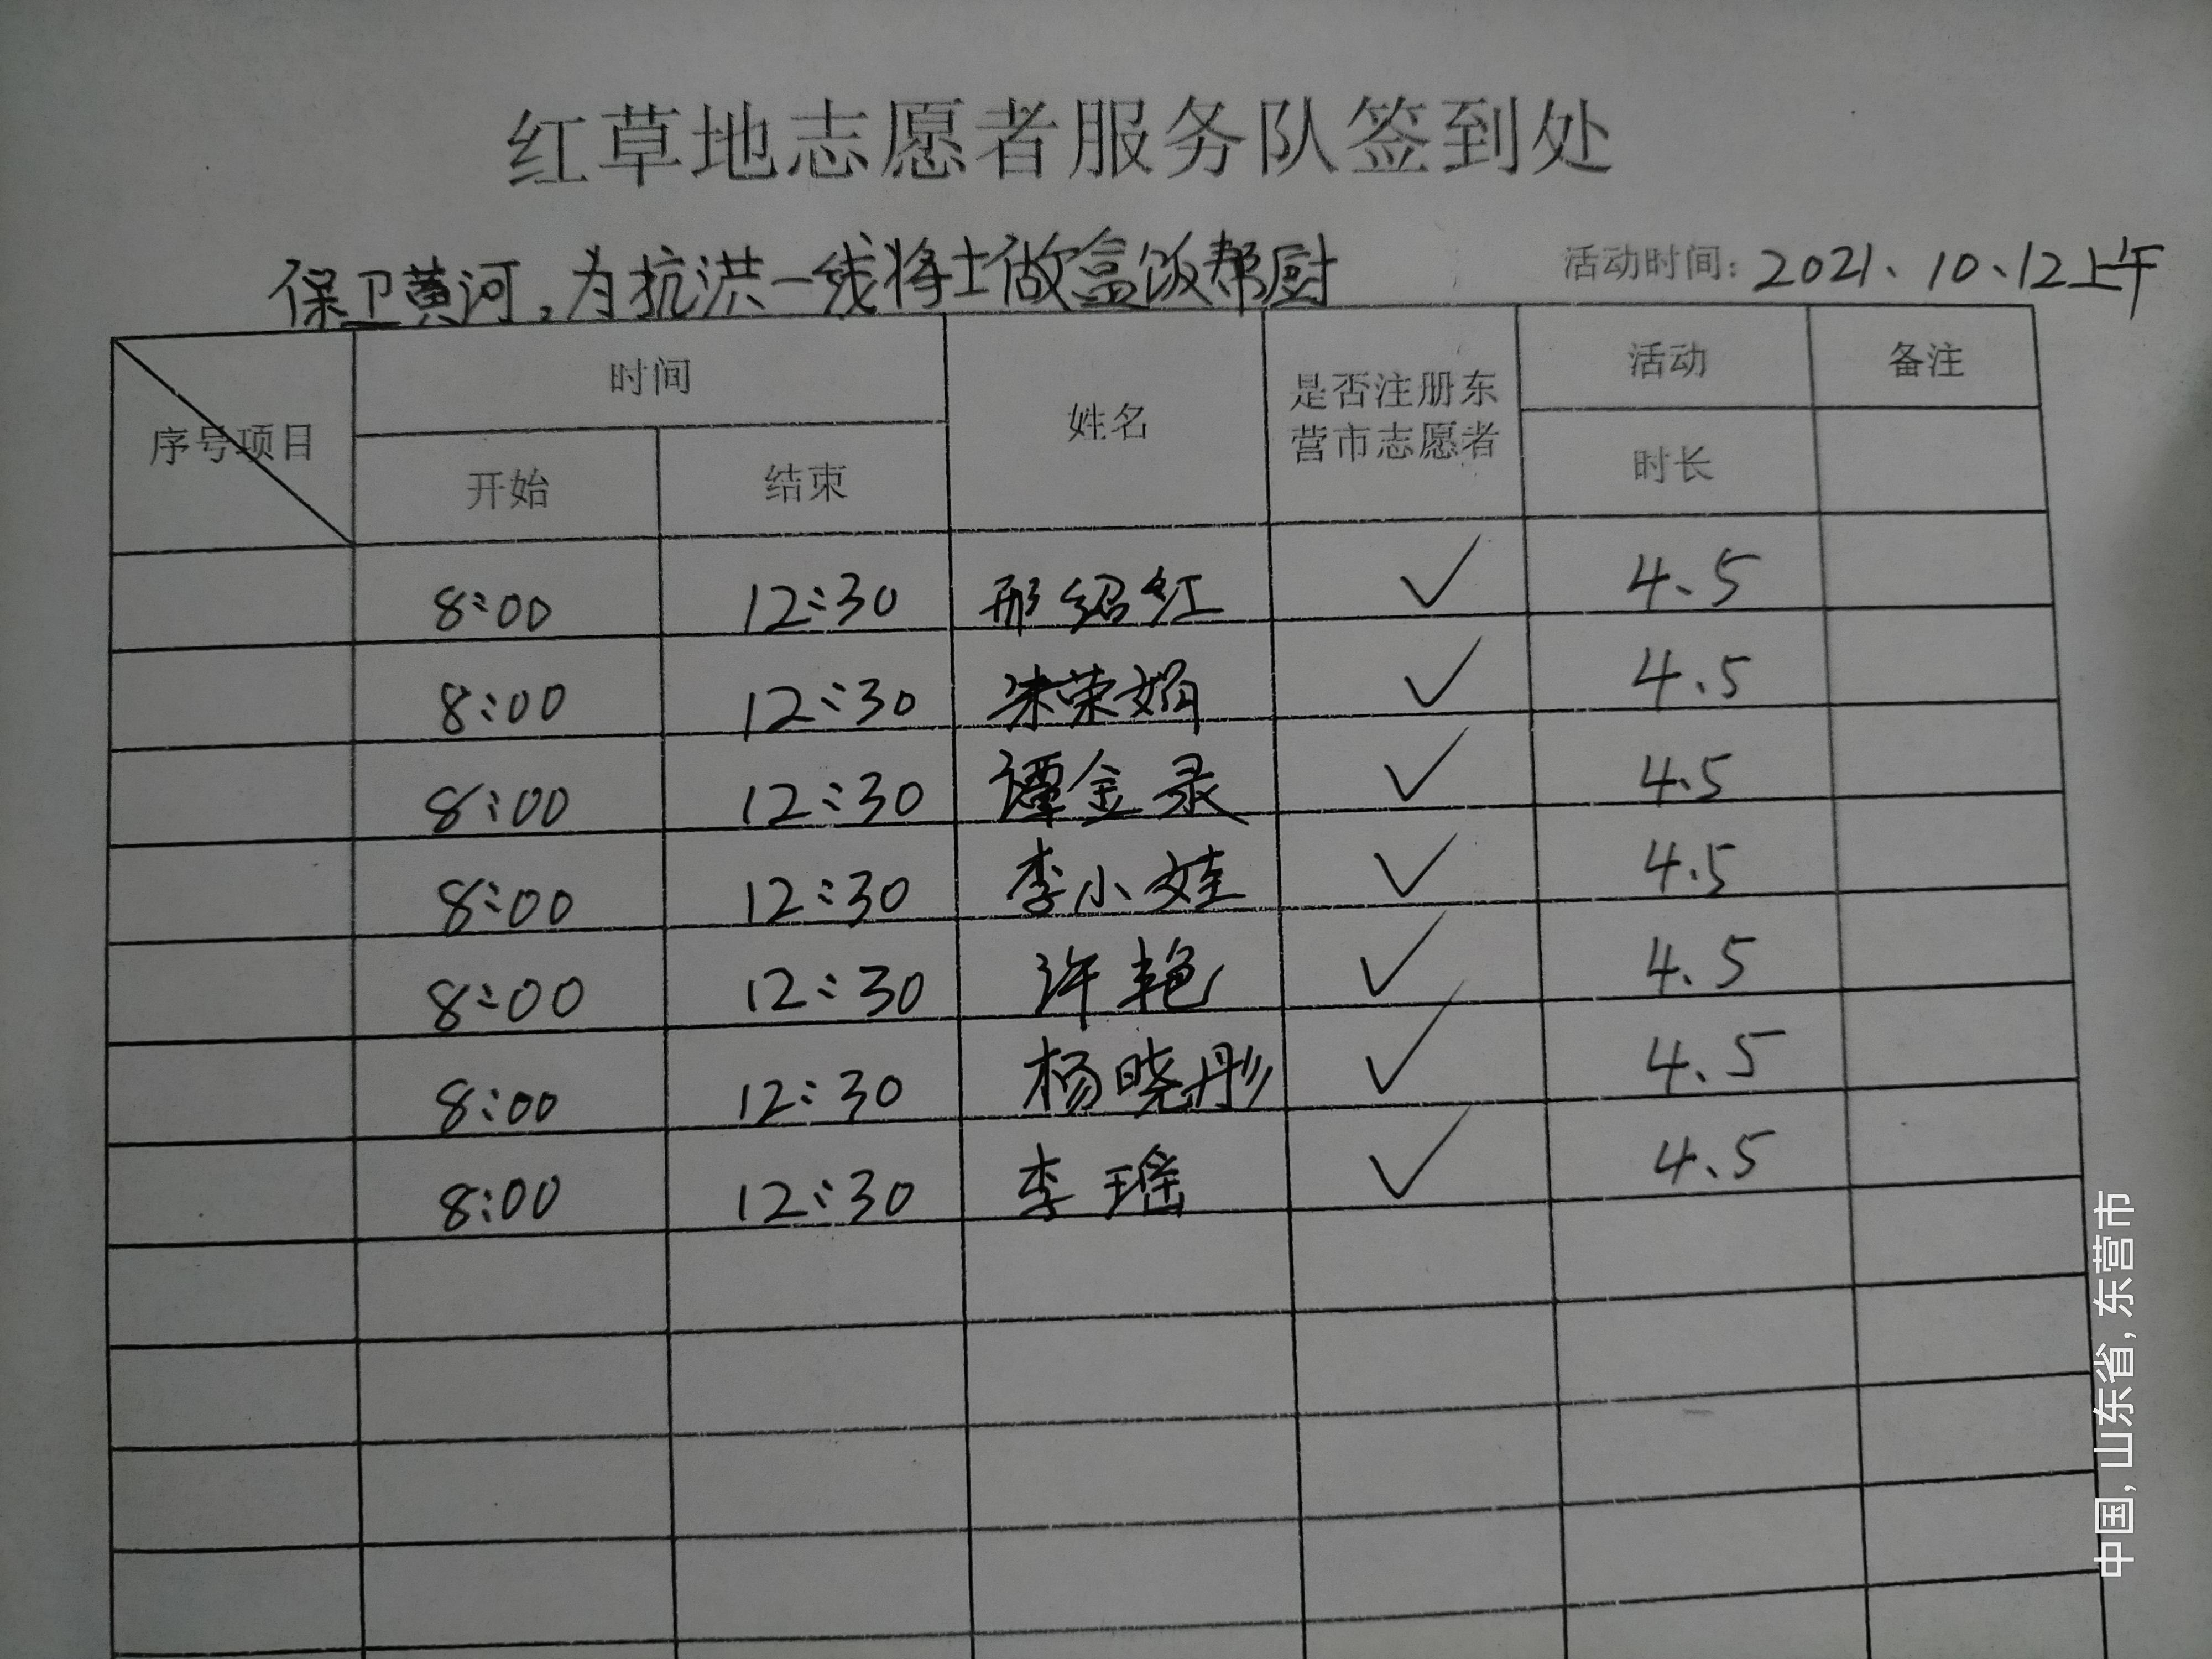 红草地志愿者服务队签到处
保卫黄河,为抗洪一线将士做盒饭帮厨 活动时间: 2021、10、12上午
序号项目 时间 姓名 是否注册东营市志愿者 活动 备注
开始 结束 时长
8:00 12:30 邢绍红 ✓ 4、5
8:00 12:30 朱荣娟 ✓ 4、5
8:00 12:30 谭金录 ✓ 4.5
8:00 12:30 李小娃 ✓ 4.5
8:00 12:30 许艳 ✓ 4.5
8:00 12:30 杨晓彤 ✓ 4、5
8:00 12:30 李瑶 ✓ 4、5
中国, 山东省, 东营市